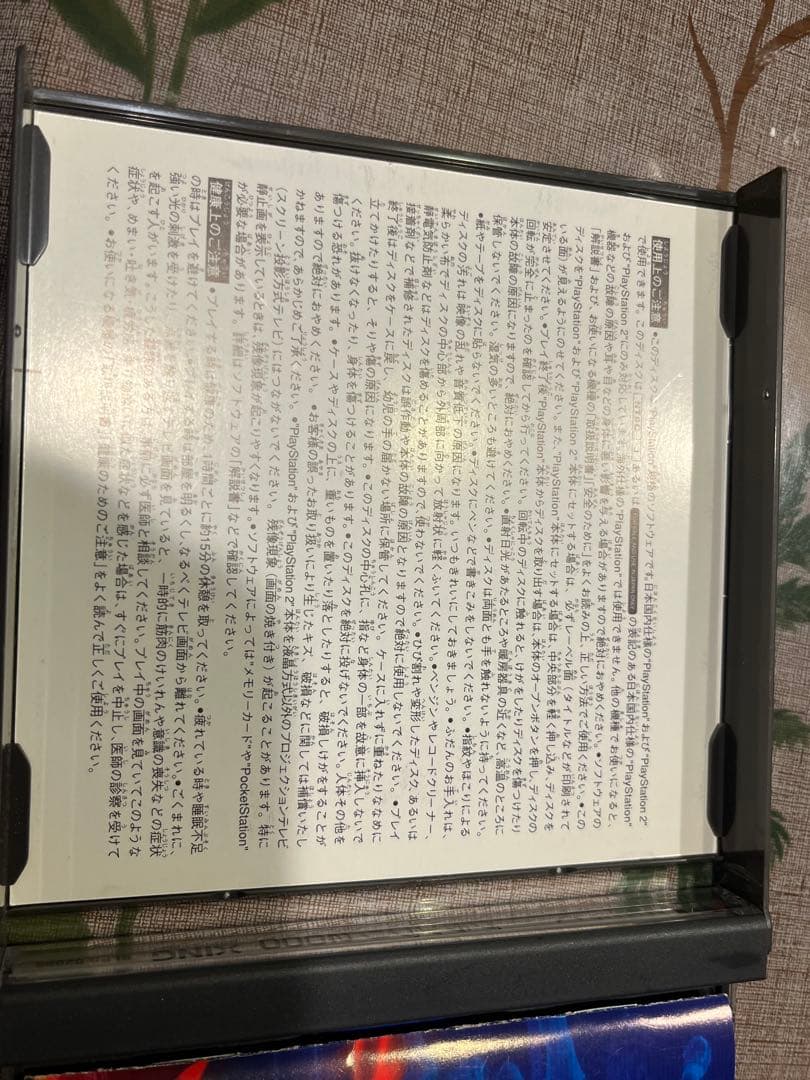 使用上のご注意 ●このディスクは、"PlayStation"規格のソフトウェアです。日本国内仕様の"PlayStation"および"PlayStation 2"
で使用できます。このディスクは、 あるいは の表記のある日本国内仕様の"PlayStation"
および"PlayStation 2"にのみ対応しています。海外仕様の"PlayStation"では使用できません。他の機種でお使いになると、
機器などの故障の原因や耳や目などの身体に悪い影響を与える場合がありますので絶対におやめください。●ソフトウェアの
「解説書」および、お使いになる機種の「取扱説明書」「安全のために」をよくお読みの上、正しい方法でご使用ください。●この
ディスクを"PlayStation"および"PlayStation 2"本体にセットする場合は、必ずレーベル面(タイトルなどが印刷されて
いる面)が見えるようにのせてください。また、"PlayStation"本体にセットする場合は、中央部分を軽く押し込み、ディスクを
安定させてください。●プレイ終了後"PlayStation"本体からディスクを取り出す場合は、本体のオープンボタンを押し、ディスクの
回転が完全に止まったのを確認してから行ってください。回転中のディスクに触れると、けがをしたりディスクを傷つけたり
本体の故障の原因になりますので、絶対におやめください。●直射日光があたるところや暖房器具の近くなど、高温のところに
保管しないでください。湿気の多いところも避けてください。●ディスクは両面とも手を触れないように持ってください。
●紙やテープをディスクに貼らないでください。●ディスクにペンなどで書きこみをしないでください。●指紋やほこりによる
ディスクの汚れは映像の乱れや音質低下の原因になります。いつもきれいにしておきましょう。●ふだんのお手入れは、
柔らかい布でディスクの中心部から外周部に向かって放射状に軽くふいてください。●ベンジンやレコードクリーナー、
静電気防止剤などはディスクを傷めることがありますので、使わないでください。●ひび割れや変形したディスク、あるいは
接着剤などで補修されたディスクは誤作動や本体の故障の原因となりますので絶対に使用しないでください。●プレイ
終了後はディスクをケースに戻し、幼児の手の届かない場所に保管してください。ケースに入れずに重ねたりななめに
立てかけたりすると、そりや傷の原因になります。●このディスクの中心孔に、指など身体の一部を故意に挿入しないで
ください。抜けなくなったり、身体を傷つけることがあります。●このディスクを絶対に投げないでください。人体その他を
傷つける恐れがあります。●ケースやディスクの上に、重いものを置いたり落としたりすると、破損しけがをすることが
ありますので絶対におやめください。●お客様の誤ったお取り扱いにより生じたキズ、破損などに関しては補償いたし
かねますので、あらかじめご了承ください。●"PlayStation"および"PlayStation 2"本体を液晶方式以外のプロジェクションテレビ
(スクリーン投影方式テレビ)にはつながないでください。残像現象(画面の焼き付き)が起こることがあります。特に
静止画を表示しているときは、残像現象が起こりやすくなります。●ソフトウェアによっては"メモリーカード"や"PocketStation"
が必要な場合があります。詳細はソフトウェアの「解説書」などで確認してください。
健康上のご注意 ●プレイする時は健康のため、1時間ごとに約15分の休憩を取ってください。●疲れている時や睡眠不足
の時はプレイを避けてください。 する時は部屋を明るくし、なるべくテレビ画面から離れてください。●ごくまれに、
強い光の刺激を受けたり、 画面を見ていると、一時的に筋肉のけいれんや意識の喪失などの症状
を起こす人がいます。 事前に必ず医師と相談してください。プレイ中の画面を見ていてこのような
症状や、めまい・吐き気・疲 症状などを感じた場合は、すぐにプレイを中止し、医師の診察を受けて
ください。●お使いになる 「健康のためのご注意」をよく読んで正しくご使用ください。